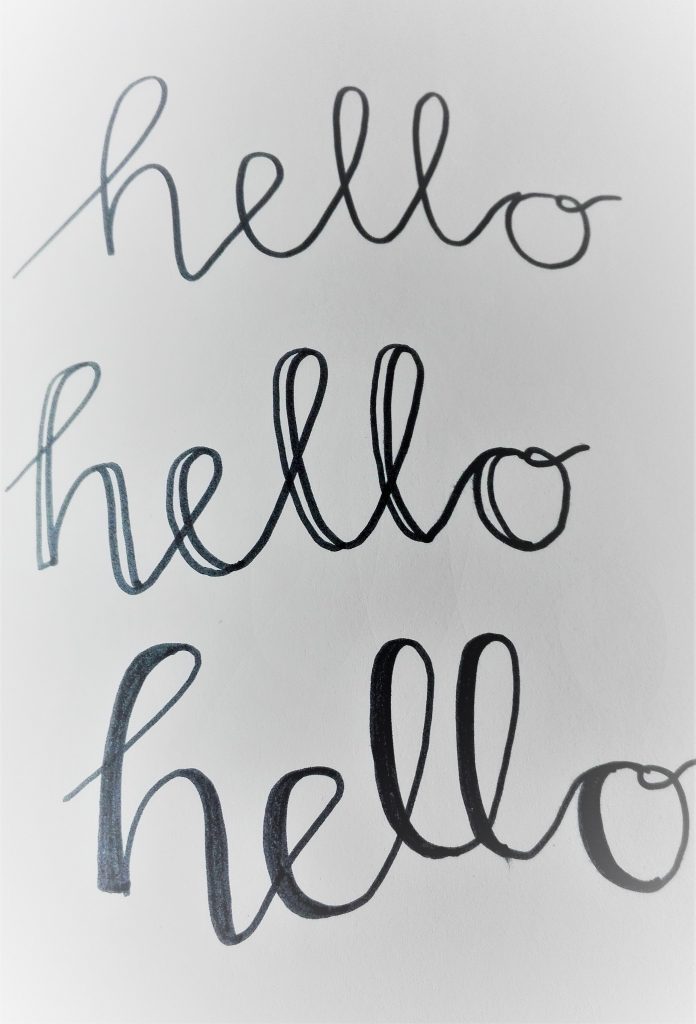 hello
hello
hello